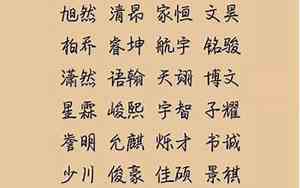 旭然 清昂 家恒 文昊
柏乔 睿坤 航宇 铭骏
潇然 语翰 天翊 博文
星霖 峻熙 宇智 子耀
誉明 允麒 烁才 书诚
少川 俊豪 佳硕 景祺